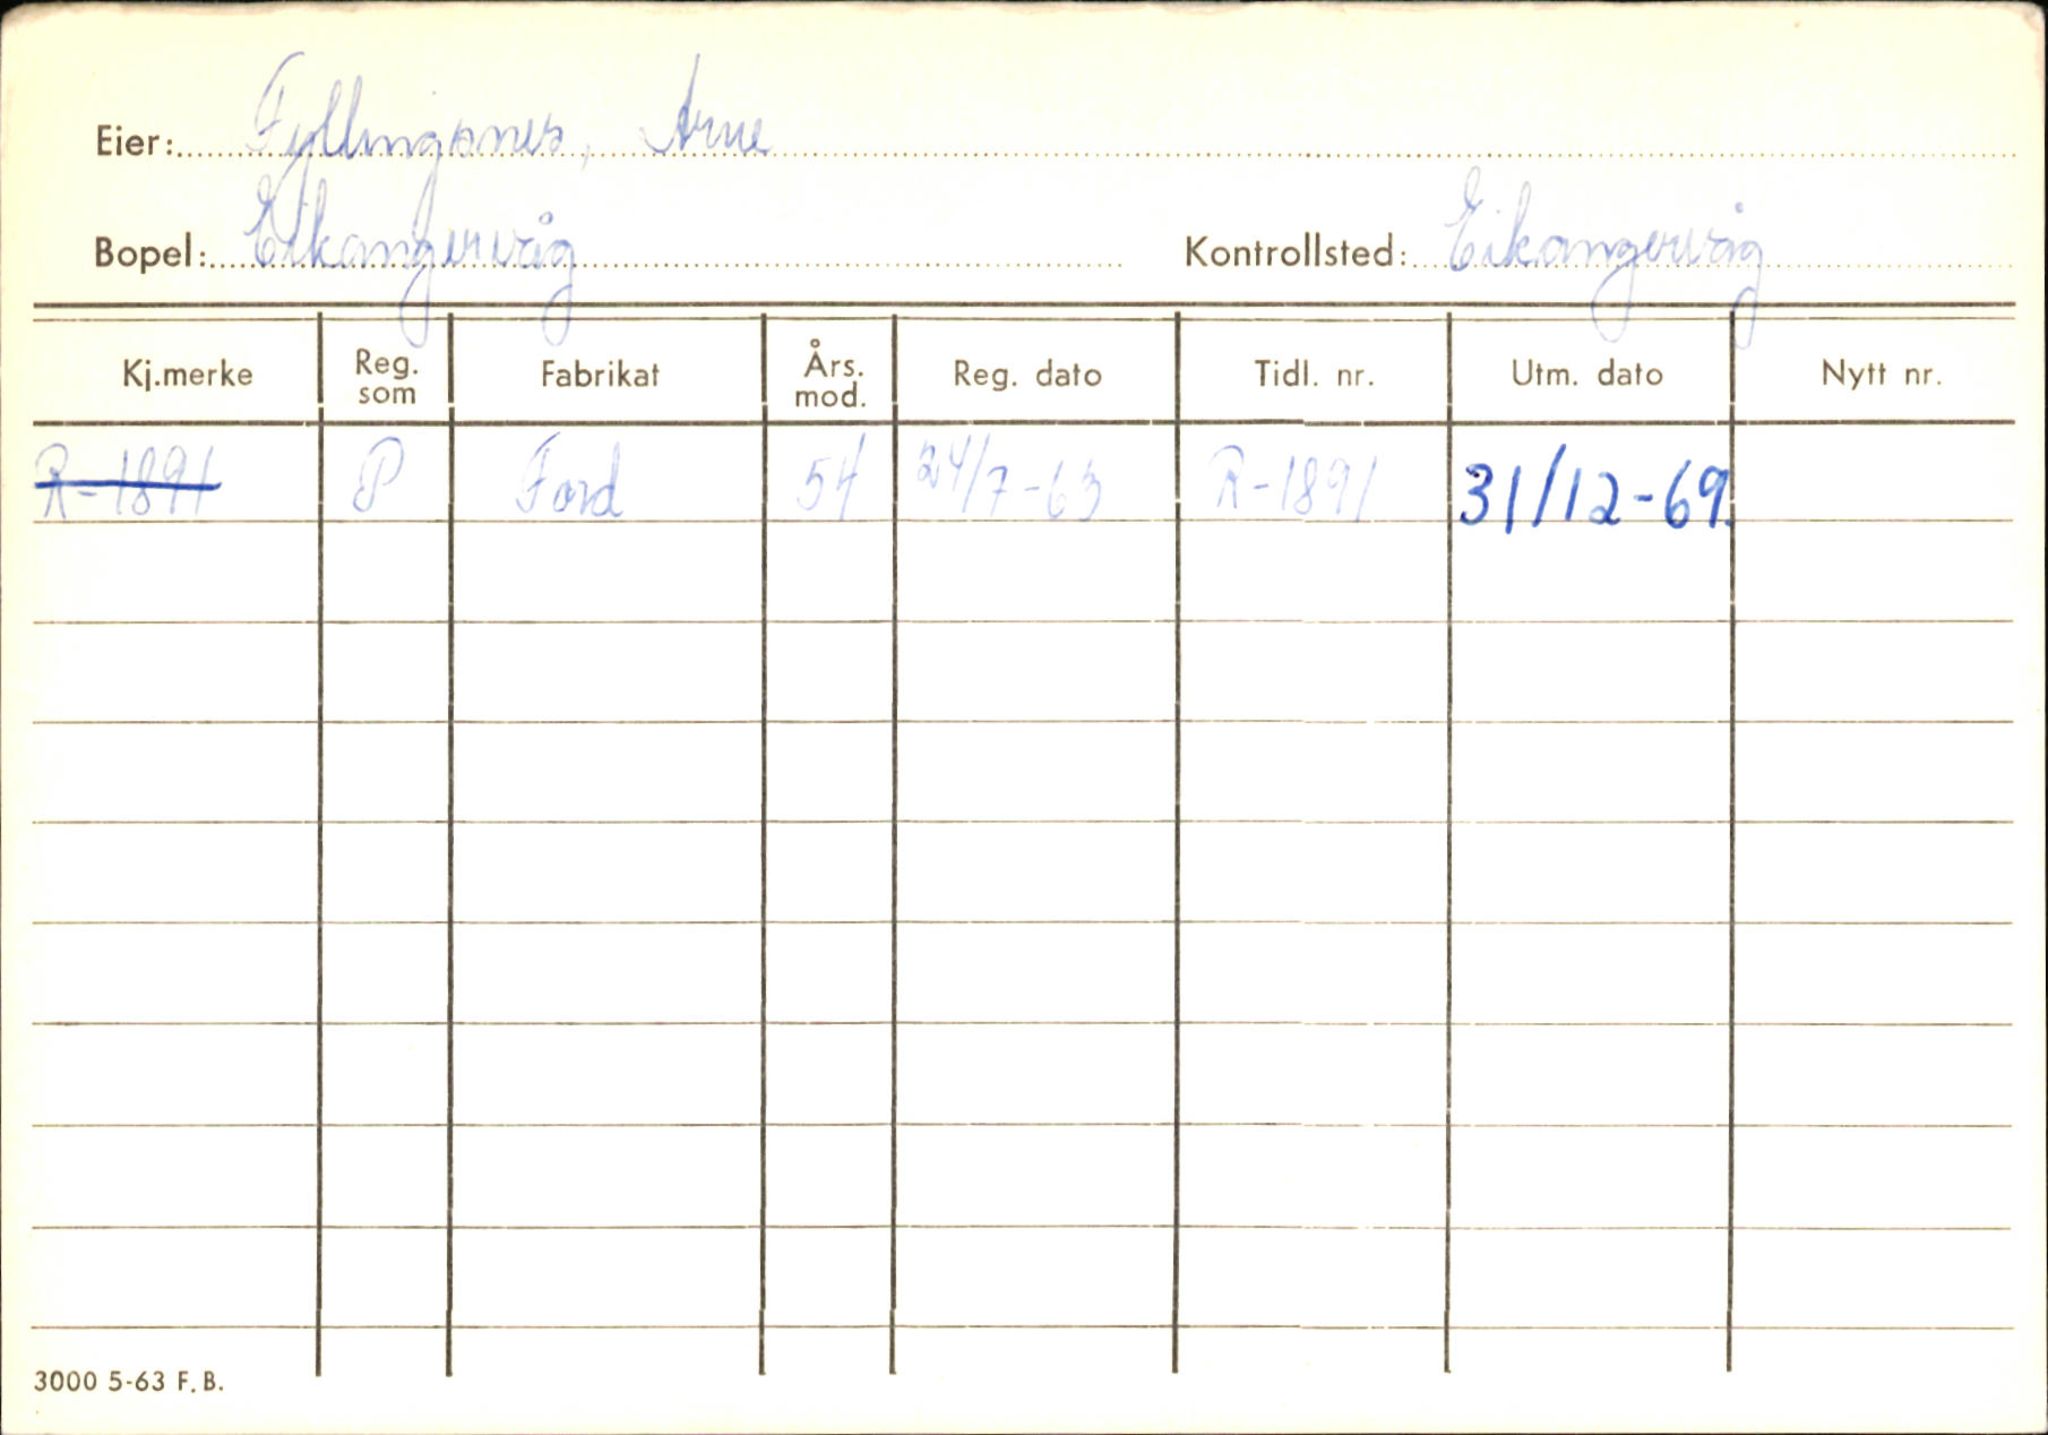 Eier: Fyllingsnes, Arne
Bopel: Eikangervåg Kontrollsted: Eikangervåg
Kj.merke Reg. som Fabrikat Års. mod. Reg. dato Tidl. nr. Utm. dato Nytt nr.
R-1891 P Ford 54 24/7-63 R-1891 31/12-69.
3000 5-63 F.B.